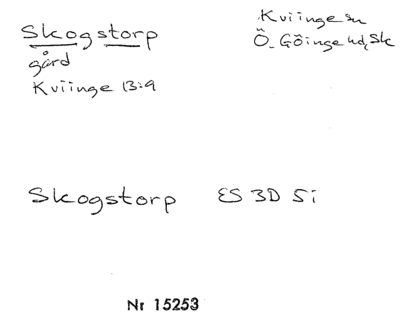 Skogstorp
gård
Kviinge 13:9
Kviinge sn
Ö. Göinge hd, Sk
Skogstorp ES 3D 5i
Nr 15253